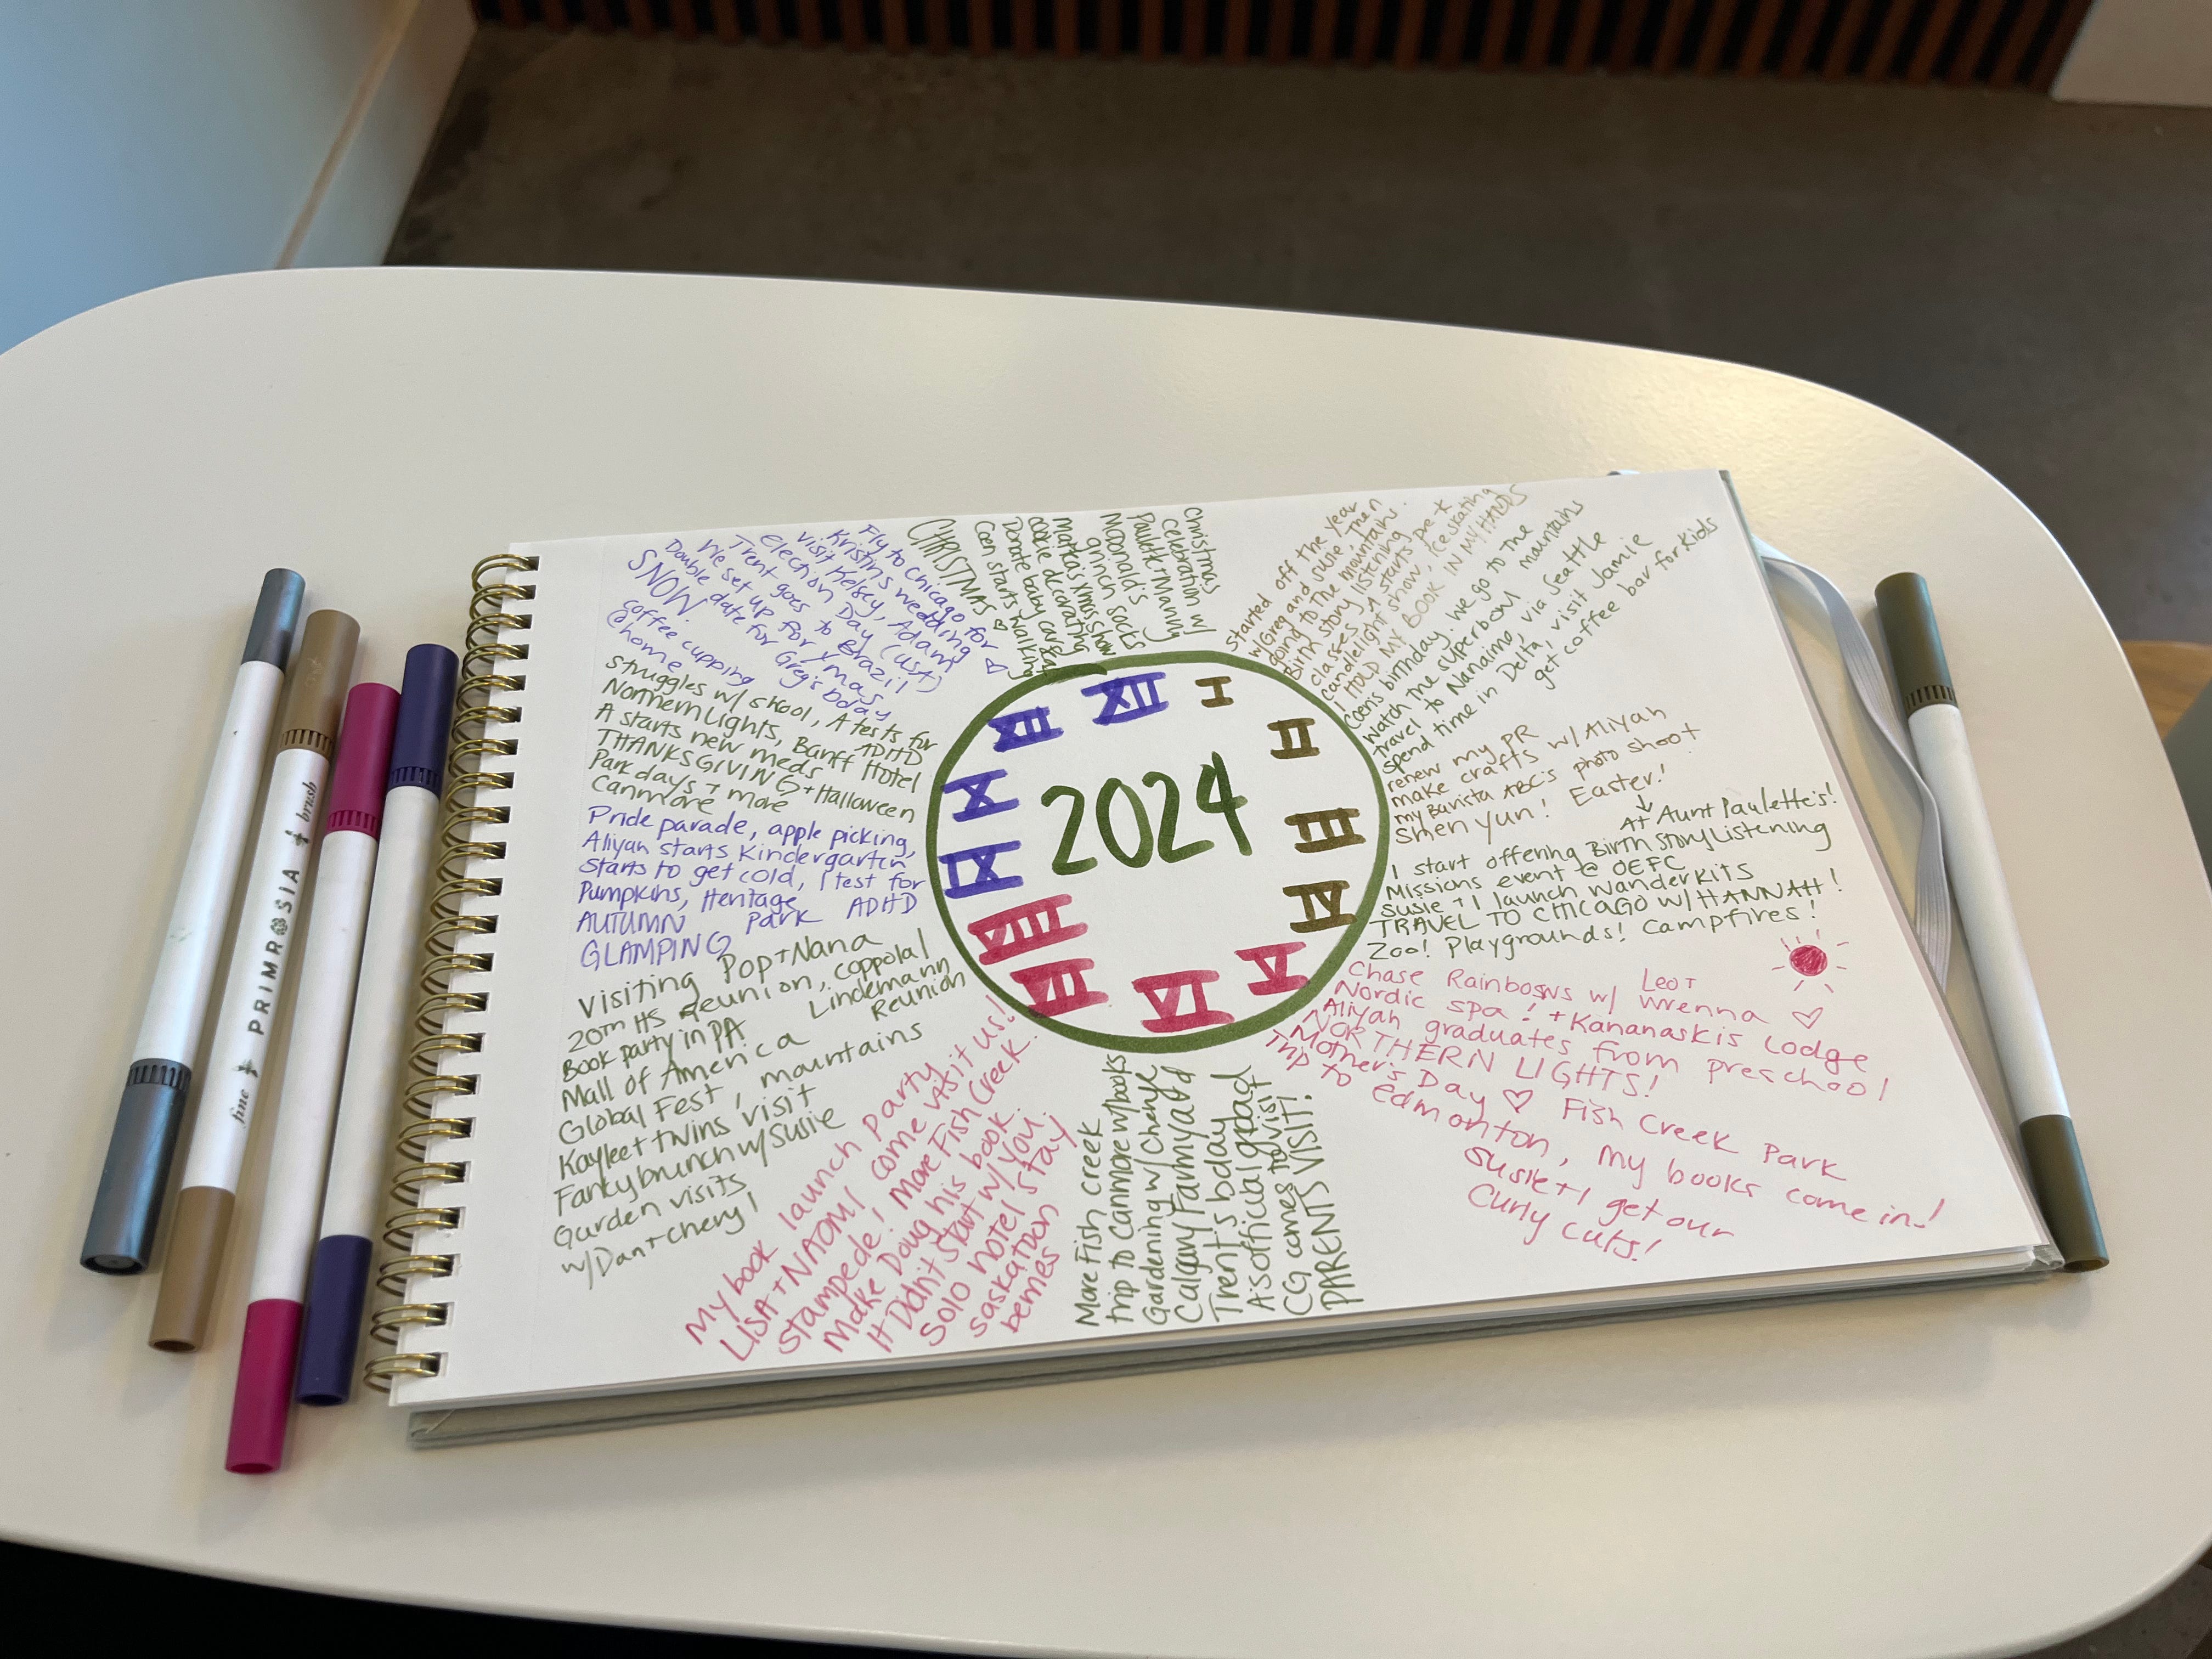 2024
I
II
III
IV
V
VI
VII
VIII
IX
X
XI
XII
Started off the year
w/Greg and Susie. Then
going to the mountains.
Birth story listening
classes. A starts pre-K
candlelight show, ice skating
I HOLD MY BOOK IN MY HANDS
Coen's birthday. We go to the
mountains
Watch the superbowl
travel to Nanaimo, via Seattle
spend time in Delta, visit Jamie
get coffee bar for kids
renew my PR
make crafts w/ Aliyah
my Barista ABC's photo shoot
Shen Yun! Easter!
↓
At Aunt Paulette's!
I start offering Birth Story Listening
Missions event @ OEFC
Susie + I launch WanderKits
TRAVEL TO CHICAGO W/ HANNAH!
Zoo! Playgrounds! Campfires!
Chase Rainbows w/ Leo +
Wrenna ♡
Nordic Spa! + Kananaskis Lodge
Aliyah graduates from preschool
NORTHERN LIGHTS!
Mother's Day ♡ Fish Creek Park
Trip to Edmonton, my books come in!
Susie + I get our
curly cuts!
More Fish creek
trip to Canmore w/books
Gardening w/ Cheryl
Calgary Farmyard
Trent's bday
A's official grad
CG comes to visit
PARENTS VISIT!
My book launch party
LISA + NAOMI come visit us!
Stampede! More Fish Creek.
Make Doug his book
It Didn't Start w/ You.
Solo hotel stay
saskatoon
berries
Visiting Pop + Nana
20th HS Reunion, Coppolal
Lindemann
Reunion
Book party in PA
Mall of America
Global Fest, mountains
Kaylee + twins visit
Fancy brunch w/ Susie
Garden visits
w/ Dan + Cheryl
Pride parade, apple picking,
Aliyah starts Kindergarten
Starts to get cold, I test for
ADHD
Pumpkins, Heritage
Park
AUTUMN
GLAMPING
struggles w/ skool, A tests for
ADHD
Northern Lights, Banff Hotel
A starts new meds
THANKSGIVING + Halloween
Park days + more
Canmore
Fly to Chicago for
Kristin's wedding
visit Kelsey, Adam
Election Day (ust)
Trent goes to Brazil
We set up for Xmas
Double date for Greg's bday
SNOW.
coffee cupping
@home
CHRISTMAS ♡
Coen starts walking
Donate baby carseat
cookie decorating
Mattea's xmas show
grinch socks
McDonald's
Paulette + Manny
celebration w/
Christmas
fine
PRIMROSIA
brush